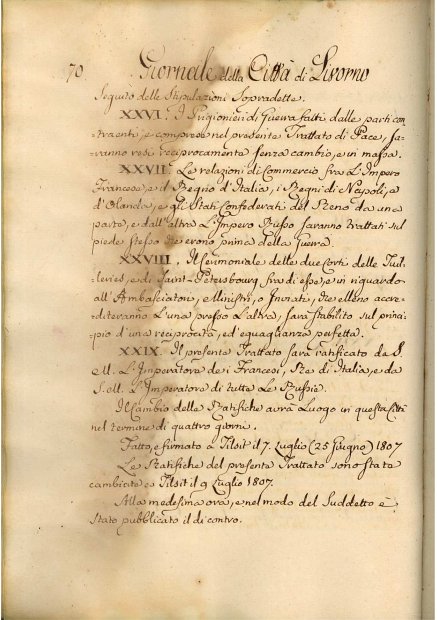 70 Giornale della Città di Livorno
Seguito delle Stipulazioni Sopradette.
XXVI. I Prigionieri di Guerra fatti dalle parti con-
=traenti, e comprese nel presente Trattato di Pace, sa-
=ranno resi reciprocamente senza cambio, e in massa.
XXVII. Le relazioni di Commercio fra L'Impero
Francese, e il Regno d'Italia, i Regni di Napoli, e
d'Olanda, e gli Stati Confederati del Reno da una
parte, e dall'altra L'Impero Russo saranno trattati sul
piede stesso che erono prima della Guerra.
XXVIII. Il Cerimoniale delle due Corti delle Tuil-
leries, e di Saint-Petersbourg fra di esse, e in riguardo
all'Ambasciatori, e Ministri, o Inviati, che elleno accre-
diteranno L'una presso L'altra, sarà stabilito sul princi-
=pio d'una reciprocità, ed'eguaglianza perfetta.
XXIX. Il presente Trattato sarà ratificato da S.
M. L'Imperatore de i Francesi, Re di Italia, e da
S. M. L'Imperatore di tutte Le Russie.
Il Cambio delle Ratifiche avrà Luogo in questa Città
nel termine di quattro giorni.
Fatto, e firmato a Tilsit il 7. Luglio (25 Giugno) 1807
Le Ratifiche del presente Trattato sono state
cambiate a Tilsit il 9 Luglio 1807.
Alla medesima ora, e nel modo del Suddetto è
Stato pubblicato il di contro.